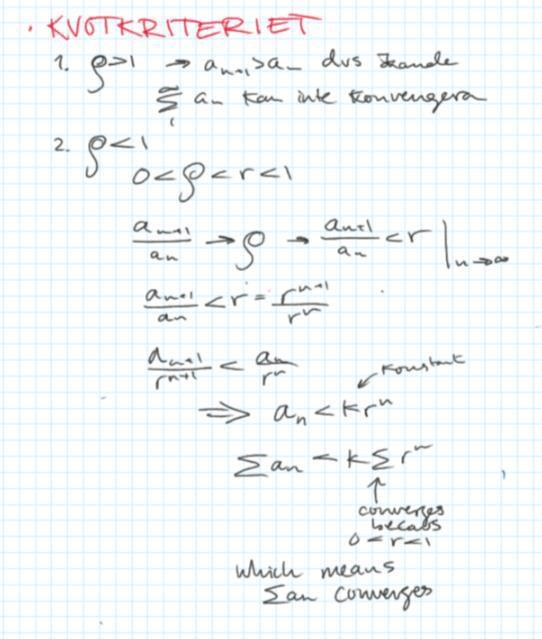 · KVOTKRITERIET
1. ρ>1 → aₙ₊₁>aₙ dvs
∑₁^∞ aₙ kan inte konvergera
2. ρ<1
0<ρ<r<1
aₙ₊₁/aₙ → ρ → aₙ₊₁/aₙ < r |ₙ→∞
aₙ₊₁/aₙ < r = rⁿ⁺¹/rⁿ
aₙ₊₁/rⁿ⁺¹ < aₙ/rⁿ
konstant
⇒ aₙ < krⁿ
∑aₙ < k∑rⁿ
↑
converges
becabs
0<r<1
which means
∑aₙ converges